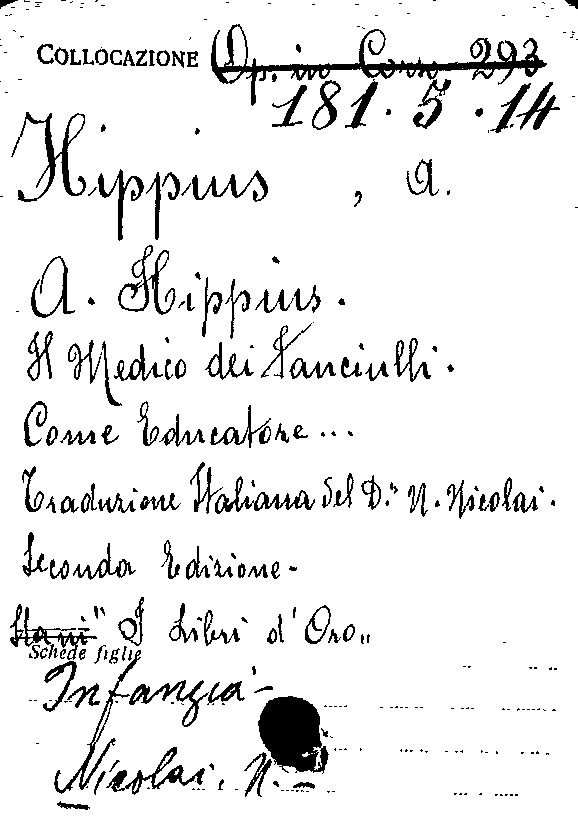 COLLOCAZIONE Op. in Corso 293
181. 5. 14
Hippius , A.
A. Hippius.
Il Medico dei Fanciulli.
Come Educatore...
Traduzione Italiana del D.r N. Nicolai.
Seconda Edizione-
" I Libri d'Oro"
Schede figlie
Infanzia-
Nicolai, N.-